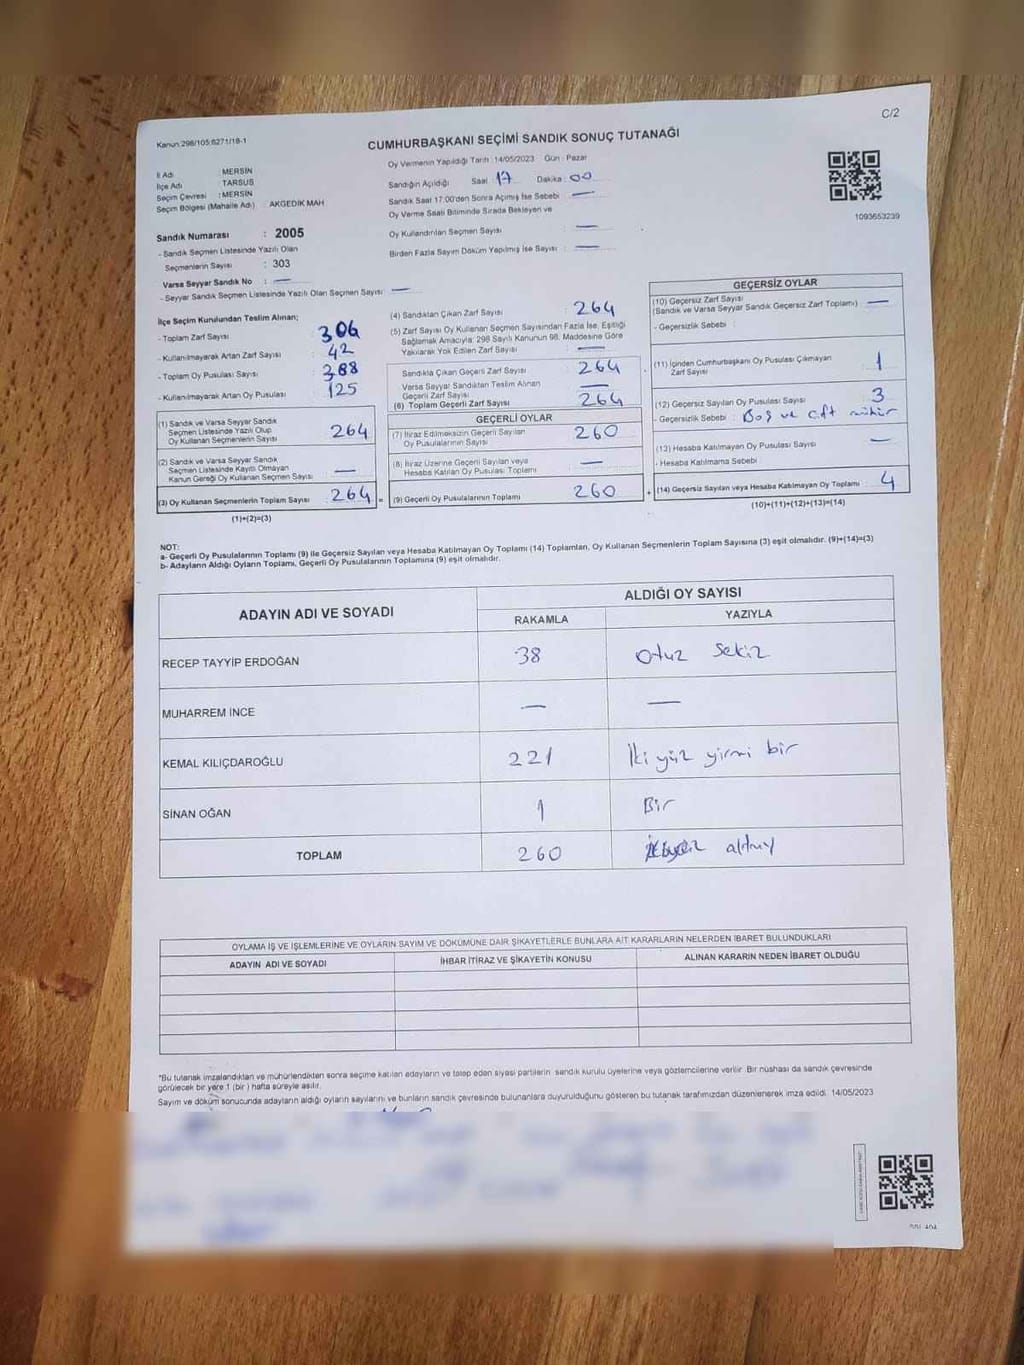 C/2
Kanun:298/105;6271/18-1
CUMHURBAŞKANI SEÇİMİ SANDIK SONUÇ TUTANAĞI
Oy Vermenin Yapıldığı Tarih :14/05/2023 Gün : Pazar
İl Adı : MERSİN
İlçe Adı : TARSUS
Seçim Çevresi : MERSİN
Seçim Bölgesi (Mahalle Adı) : AKGEDİK MAH
Sandığın Açıldığı Saat : 17 Dakika : 00
Sandık Saat 17:00'den Sonra Açılmış İse Sebebi : —
Oy Verme Saati Bitiminde Sırada Bekleyen ve
Oy Kullandırılan Seçmen Sayısı : —
Birden Fazla Sayım Döküm Yapılmış İse Sayısı : —
1093653239
Sandık Numarası : 2005
- Sandık Seçmen Listesinde Yazılı Olan
Seçmenlerin Sayısı : 303
Varsa Seyyar Sandık No : —
- Seyyar Sandık Seçmen Listesinde Yazılı Olan Seçmen Sayısı : —
İlçe Seçim Kurulundan Teslim Alınan;
- Toplam Zarf Sayısı : 306
- Kullanılmayarak Artan Zarf Sayısı : 42
- Toplam Oy Pusulası Sayısı : 388
- Kullanılmayarak Artan Oy Pusulası : 125
(1) Sandık ve Varsa Seyyar Sandık
Seçmen Listesinde Yazılı Olup
Oy Kullanan Seçmenlerin Sayısı : 264
(2) Sandık ve Varsa Seyyar Sandık
Seçmen Listesinde Kayıtlı Olmayan
Kanun Gereği Oy Kullanan Seçmen Sayısı : —
(3) Oy Kullanan Seçmenlerin Toplam Sayısı : 264 =
(1)+(2)=(3)
(4) Sandıktan Çıkan Zarf Sayısı : 264
(5) Zarf Sayısı Oy Kullanan Seçmen Sayısından Fazla İse, Eşitliği
Sağlamak Amacıyla: 298 Sayılı Kanunun 98. Maddesine Göre
Yakılarak Yok Edilen Zarf Sayısı : —
Sandıkla Çıkan Geçerli Zarf Sayısı : 264
Varsa Seyyar Sandıktan Teslim Alınan
Geçerli Zarf Sayısı : —
(6) Toplam Geçerli Zarf Sayısı : 264
GEÇERLİ OYLAR
(7) İtiraz Edilmeksizin Geçerli Sayılan
Oy Pusulalarının Sayısı : 260
(8) İtiraz Üzerine Geçerli Sayılan veya
Hesaba Katılan Oy Pusulası Toplamı : —
(9) Geçerli Oy Pusulalarının Toplamı : 260 +
GEÇERSİZ OYLAR
(10) Geçersiz Zarf Sayısı
(Sandık ve Varsa Seyyar Sandık Geçersiz Zarf Toplamı) : —
- Geçersizlik Sebebi :
(11) İçinden Cumhurbaşkanı Oy Pusulası Çıkmayan
Zarf Sayısı : 1
(12) Geçersiz Sayılan Oy Pusulası Sayısı : 3
- Geçersizlik Sebebi : Boş ve çift mühür
(13) Hesaba Katılmayan Oy Pusulası Sayısı : —
- Hesaba Katılmama Sebebi :
(14) Geçersiz Sayılan veya Hesaba Katılmayan Oy Toplamı : 4
(10)+(11)+(12)+(13)=(14)
NOT:
a- Geçerli Oy Pusulalarının Toplamı (9) ile Geçersiz Sayılan veya Hesaba Katılmayan Oy Toplamı (14) Toplamları, Oy Kullanan Seçmenlerin Toplam Sayısına (3) eşit olmalıdır. (9)+(14)=(3)
b- Adayların Aldığı Oyların Toplamı, Geçerli Oy Pusulalarının Toplamına (9) eşit olmalıdır.
ADAYIN ADI VE SOYADI ALDIĞI OY SAYISI
RAKAMLA YAZIYLA
RECEP TAYYİP ERDOĞAN 38 otuz sekiz
MUHARREM İNCE — —
KEMAL KILIÇDAROĞLU 221 İki yüz yirmi bir
SİNAN OĞAN 1 Bir
TOPLAM 260 İkiyüz altmış
OYLAMA İŞ VE İŞLEMLERİNE VE OYLARIN SAYIM VE DÖKÜMÜNE DAİR ŞİKAYETLERLE BUNLARA AİT KARARLARIN NELERDEN İBARET BULUNDUKLARI
ADAYIN ADI VE SOYADI İHBAR İTİRAZ VE ŞİKAYETİN KONUSU ALINAN KARARIN NEDEN İBARET OLDUĞU
*Bu tutanak imzalandıktan ve mühürlendikten sonra seçime katılan adayların ve talep eden siyasi partilerin sandık kurulu üyelerine veya gözlemcilerine verilir. Bir nüshası da sandık çevresinde
görülecek bir yere 1 (bir) hafta süreyle asılır.
Sayım ve döküm sonucunda adayların aldığı oyların sayılarını ve bunların sandık çevresinde bulunanlara duyurulduğunu gösteren bu tutanak tarafımızdan düzenlenerek imza edildi. 14/05/2023